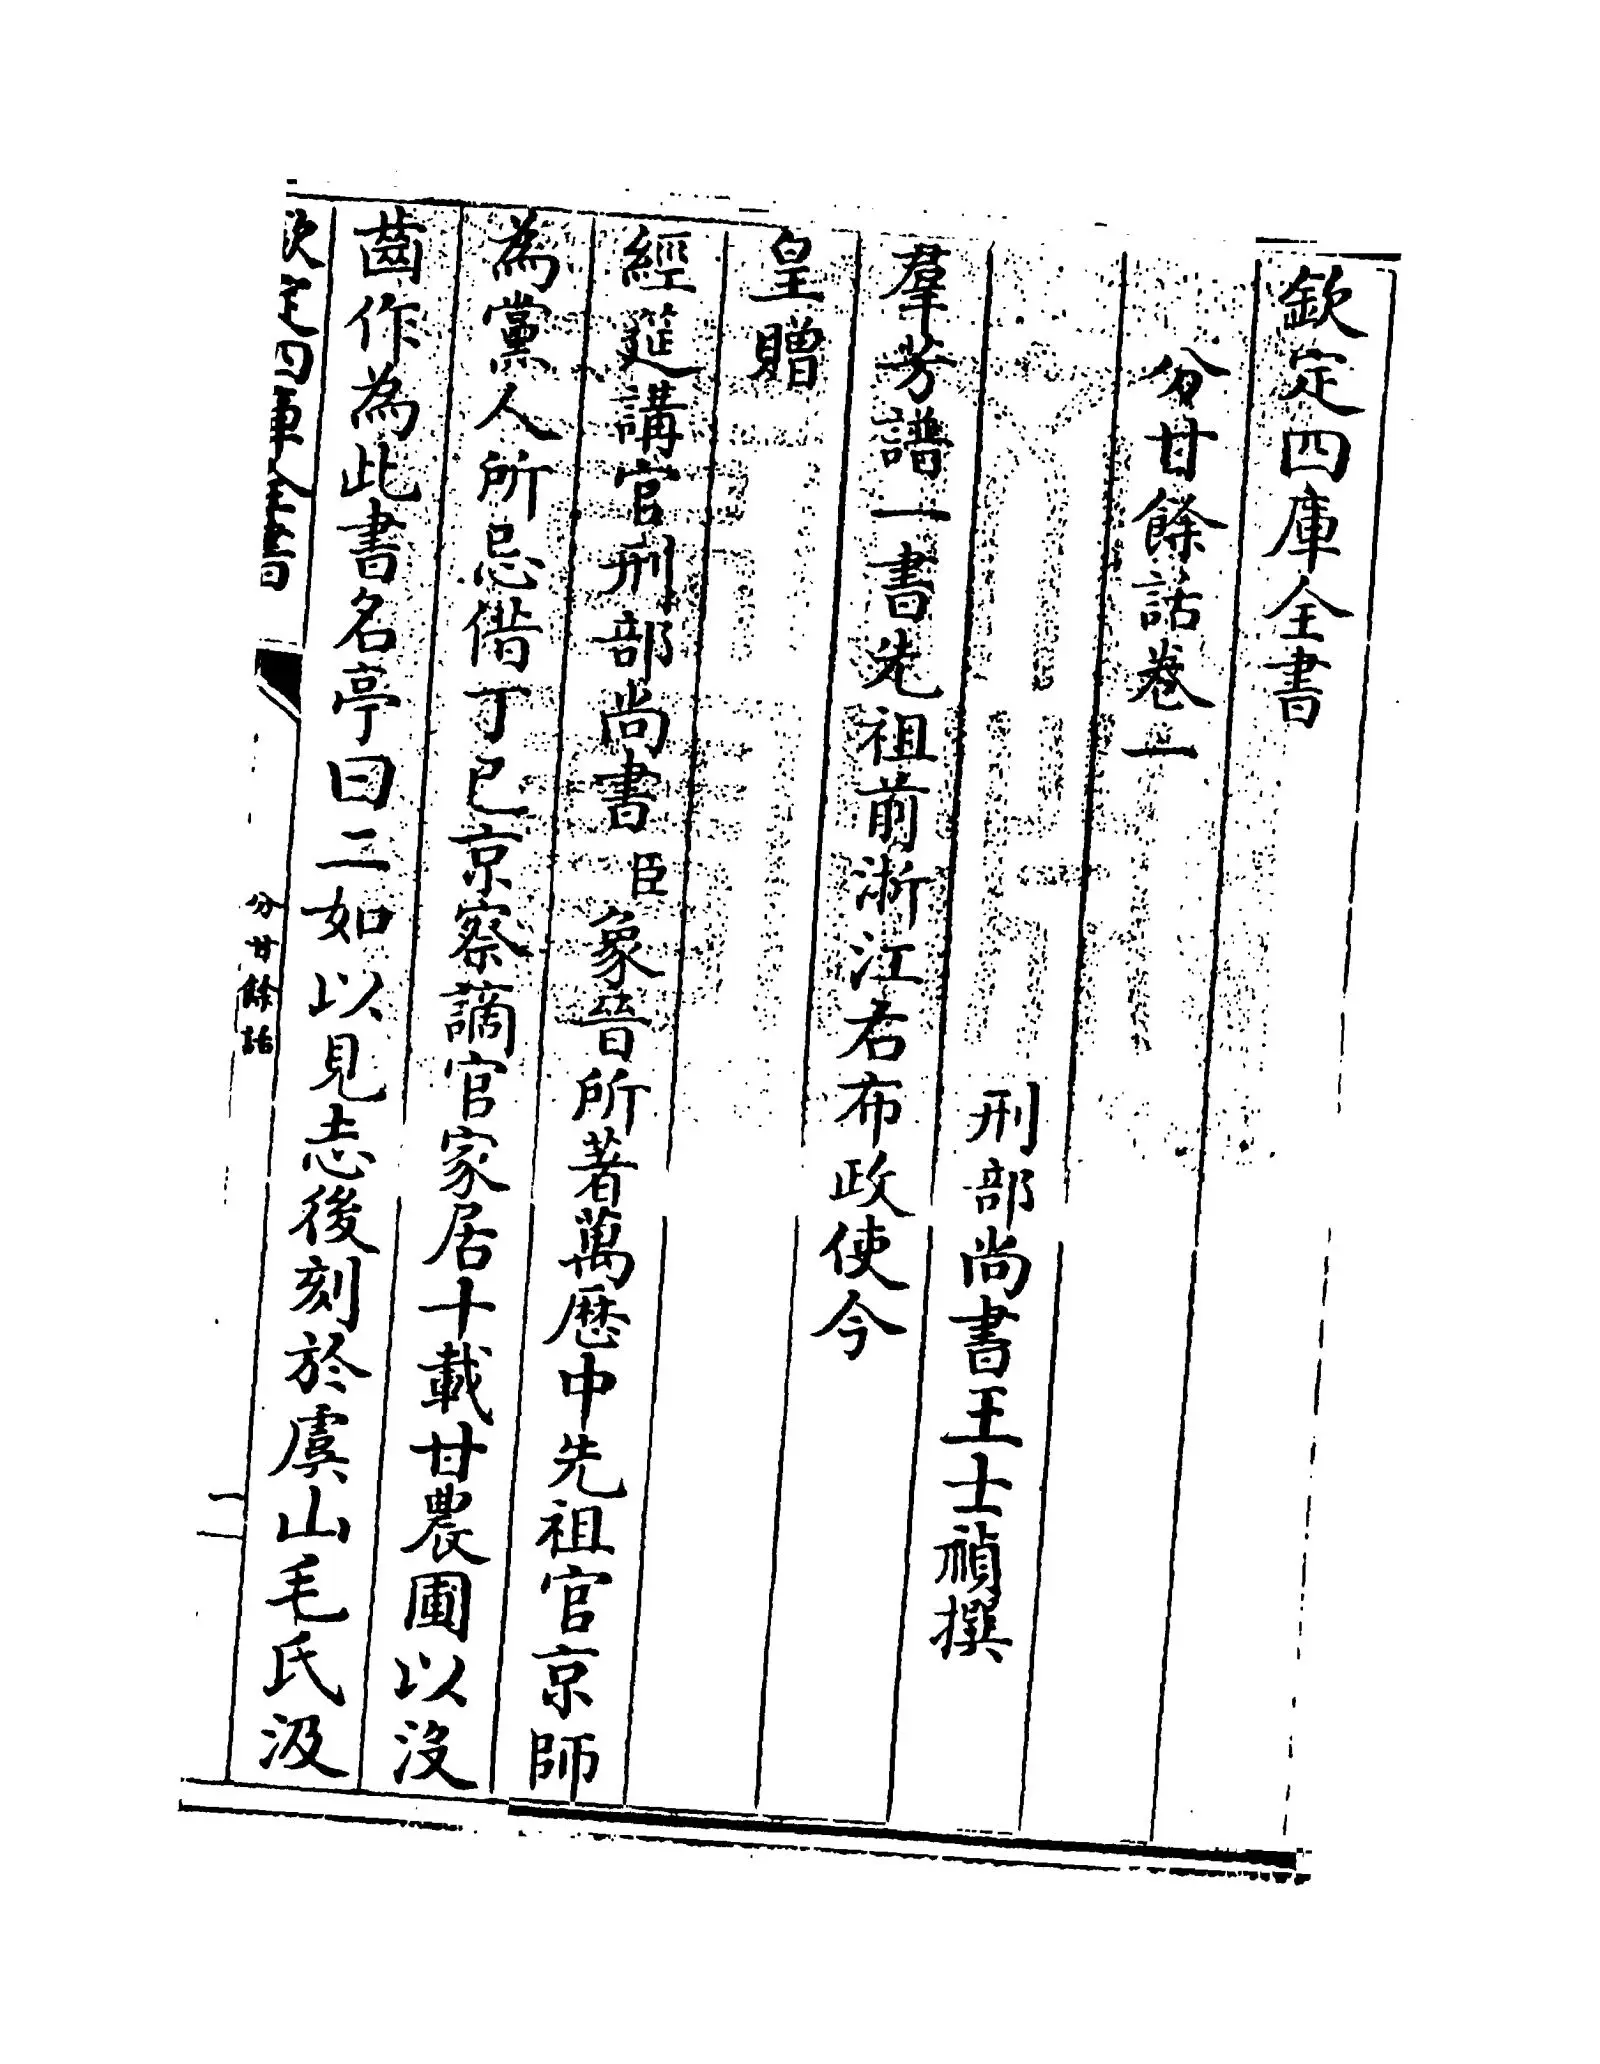 欽定四庫全書
分甘餘話卷一
刑部尚書王士禎撰
羣芳譜一書先祖前浙江右布政使今
皇贈
經筵講官刑部尚書臣象晉所著萬歷中先祖官京師
為黨人所忌借丁巳京察謫官家居十載甘農圃以沒
齒作為此書名亭曰二如以見志後刻於虞山毛氏汲
欽定四庫全書
分甘餘話